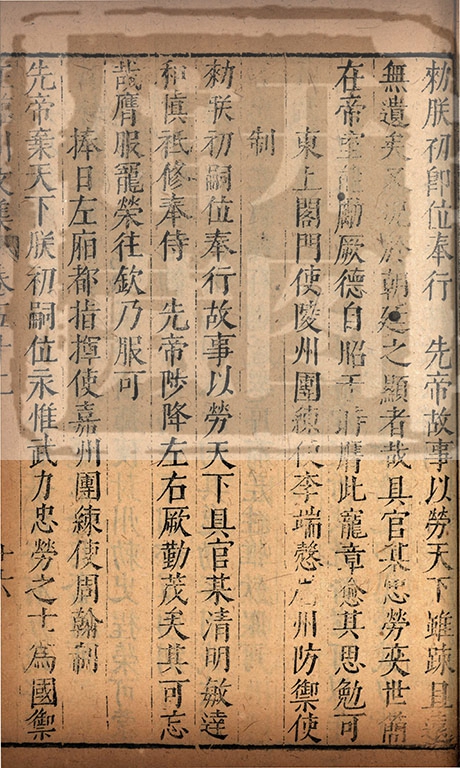 勑朕初卽位奉行　先帝故事以勞天下雖踈且遠
無遺矣又況於朝廷之顯者哉具官某忠勞奕世簡
在帝室能勵厥德自昭于時膺此寵章愈其思勉可
東上閤門使陵州團練使李端愨眉州防禦使
制
勑朕初嗣位奉行故事以勞天下具官某清明敏達
和愼祇修奉侍　先帝陟降左右厥勤茂矣其可忘
哉膺服寵榮往欽乃服可
捧日左廂都指揮使嘉州團練使周翰制
先帝棄天下朕初嗣位永惟武力忠勞之士爲國禦
文集 卷五十二
十六